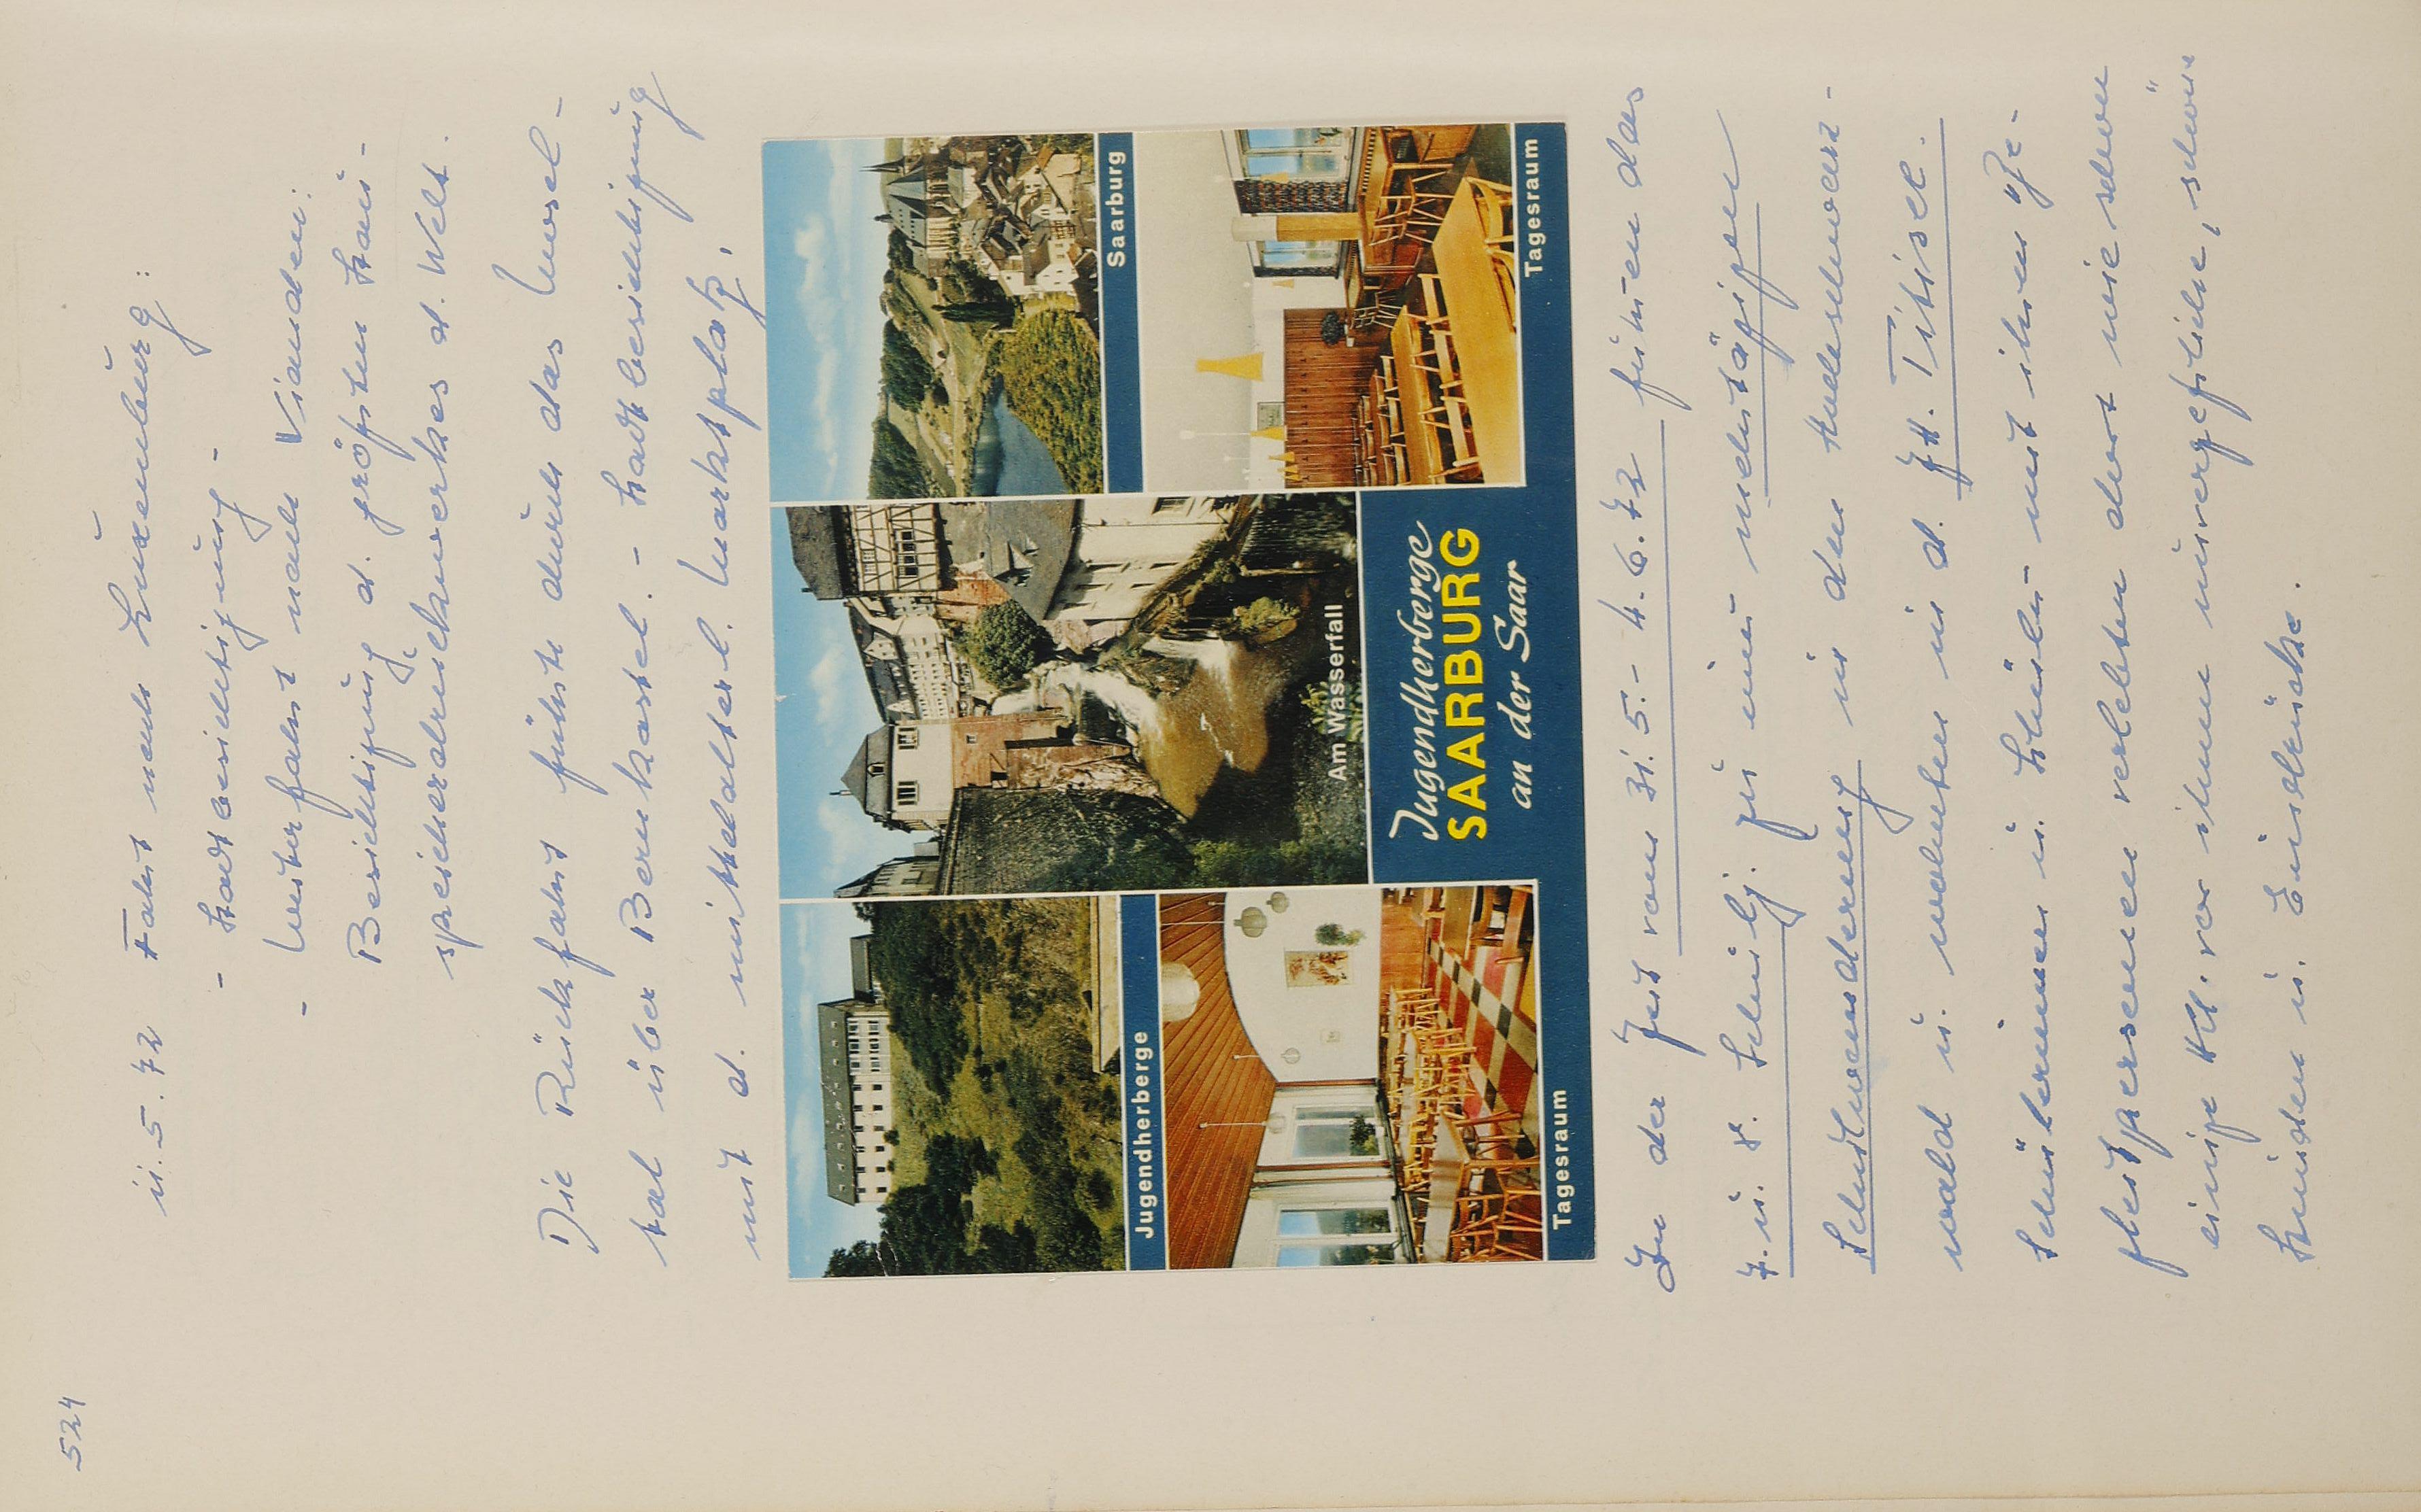 524
11.5.72 Fahrt nach Luxemburg:
- Stadtbesichtigung -
- Weiterfahrt nach Vianden:
Besichtigung d. größten Stau-
speicherdruckwerkes d. Welt.
Die Rückfahrt führte durch das Mosel-
tal über Bernkastel. - Stadtbesichtigung
mit d. mittelalterl. Marktplatz.
Jugendherberge
Am Wasserfall
Saarburg
Tagesraum
Jugendherberge
SAARBURG
an der Saar
Tagesraum
In der Zeit vom 31.5.- 4.6.72 fuhren das
7. u. 8. Schulj. zu einer mehrtägigen
Schulwanderung in den Südschwarz-
wald u. wohnten in d. JH. Titisee.
Schülerinnen u. Schüler mit ihren Be-
gleitpersonen verlebten dort wie schon
einige Kl. vor ihnen unvergeßliche, schöne
Stunden u. Eindrücke.